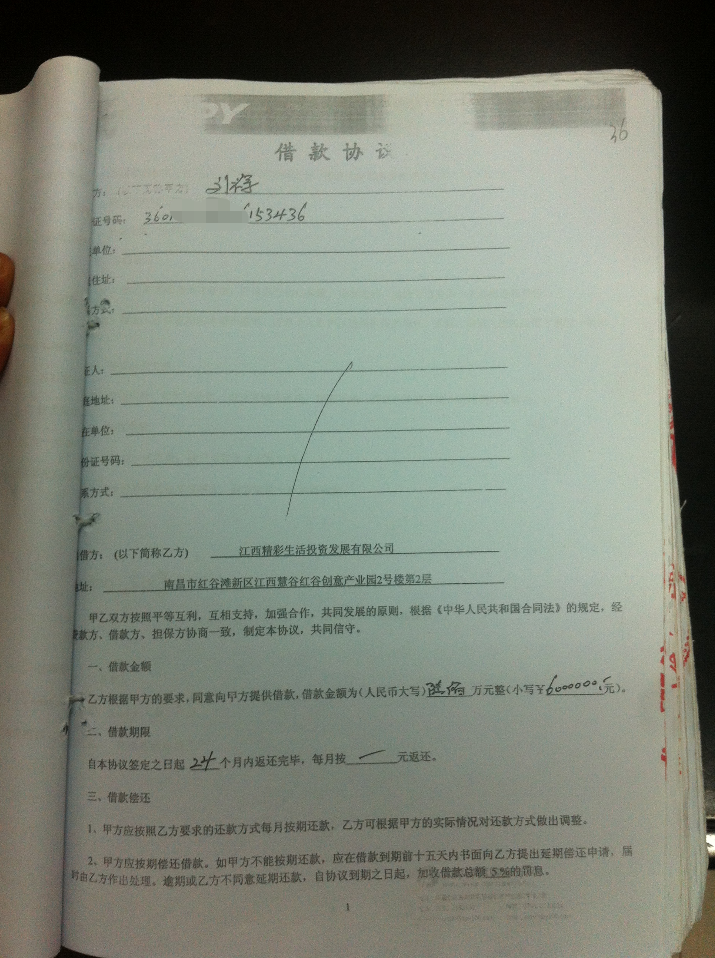 PY
36
借款协议
方：
证号码：360 6153436
单位：
住址：
方式：
证人：
地址：
在单位：
份证号码：
系方式：
借方：（以下简称乙方） 江西精彩生活投资发展有限公司
址： 南昌市红谷滩新区江西慧谷红谷创意产业园2号楼第2层
甲乙双方按照平等互利，互相支持，加强合作，共同发展的原则，根据《中华人民共和国合同法》的规定，经
款方、借款方、担保方协商一致，制定本协议，共同信守。
一、借款金额
乙方根据甲方的要求，同意向甲方提供借款，借款金额为（人民币大写）陆佰万元整（小写￥6000000元）。
二、借款期限
自本协议签定之日起 24 个月内返还完毕，每月按 一 元返还。
三、借款偿还
1、甲方应按照乙方要求的还款方式每月按期还款，乙方可根据甲方的实际情况对还款方式做出调整。
2、甲方应按期偿还借款。如甲方不能按期还款，应在借款到期前十五天内书面向乙方提出延期偿还申请，届
时由乙方作出处理。逾期或乙方不同意延期还款，自协议到期之日起，加收借款总额 5%的罚息。
1